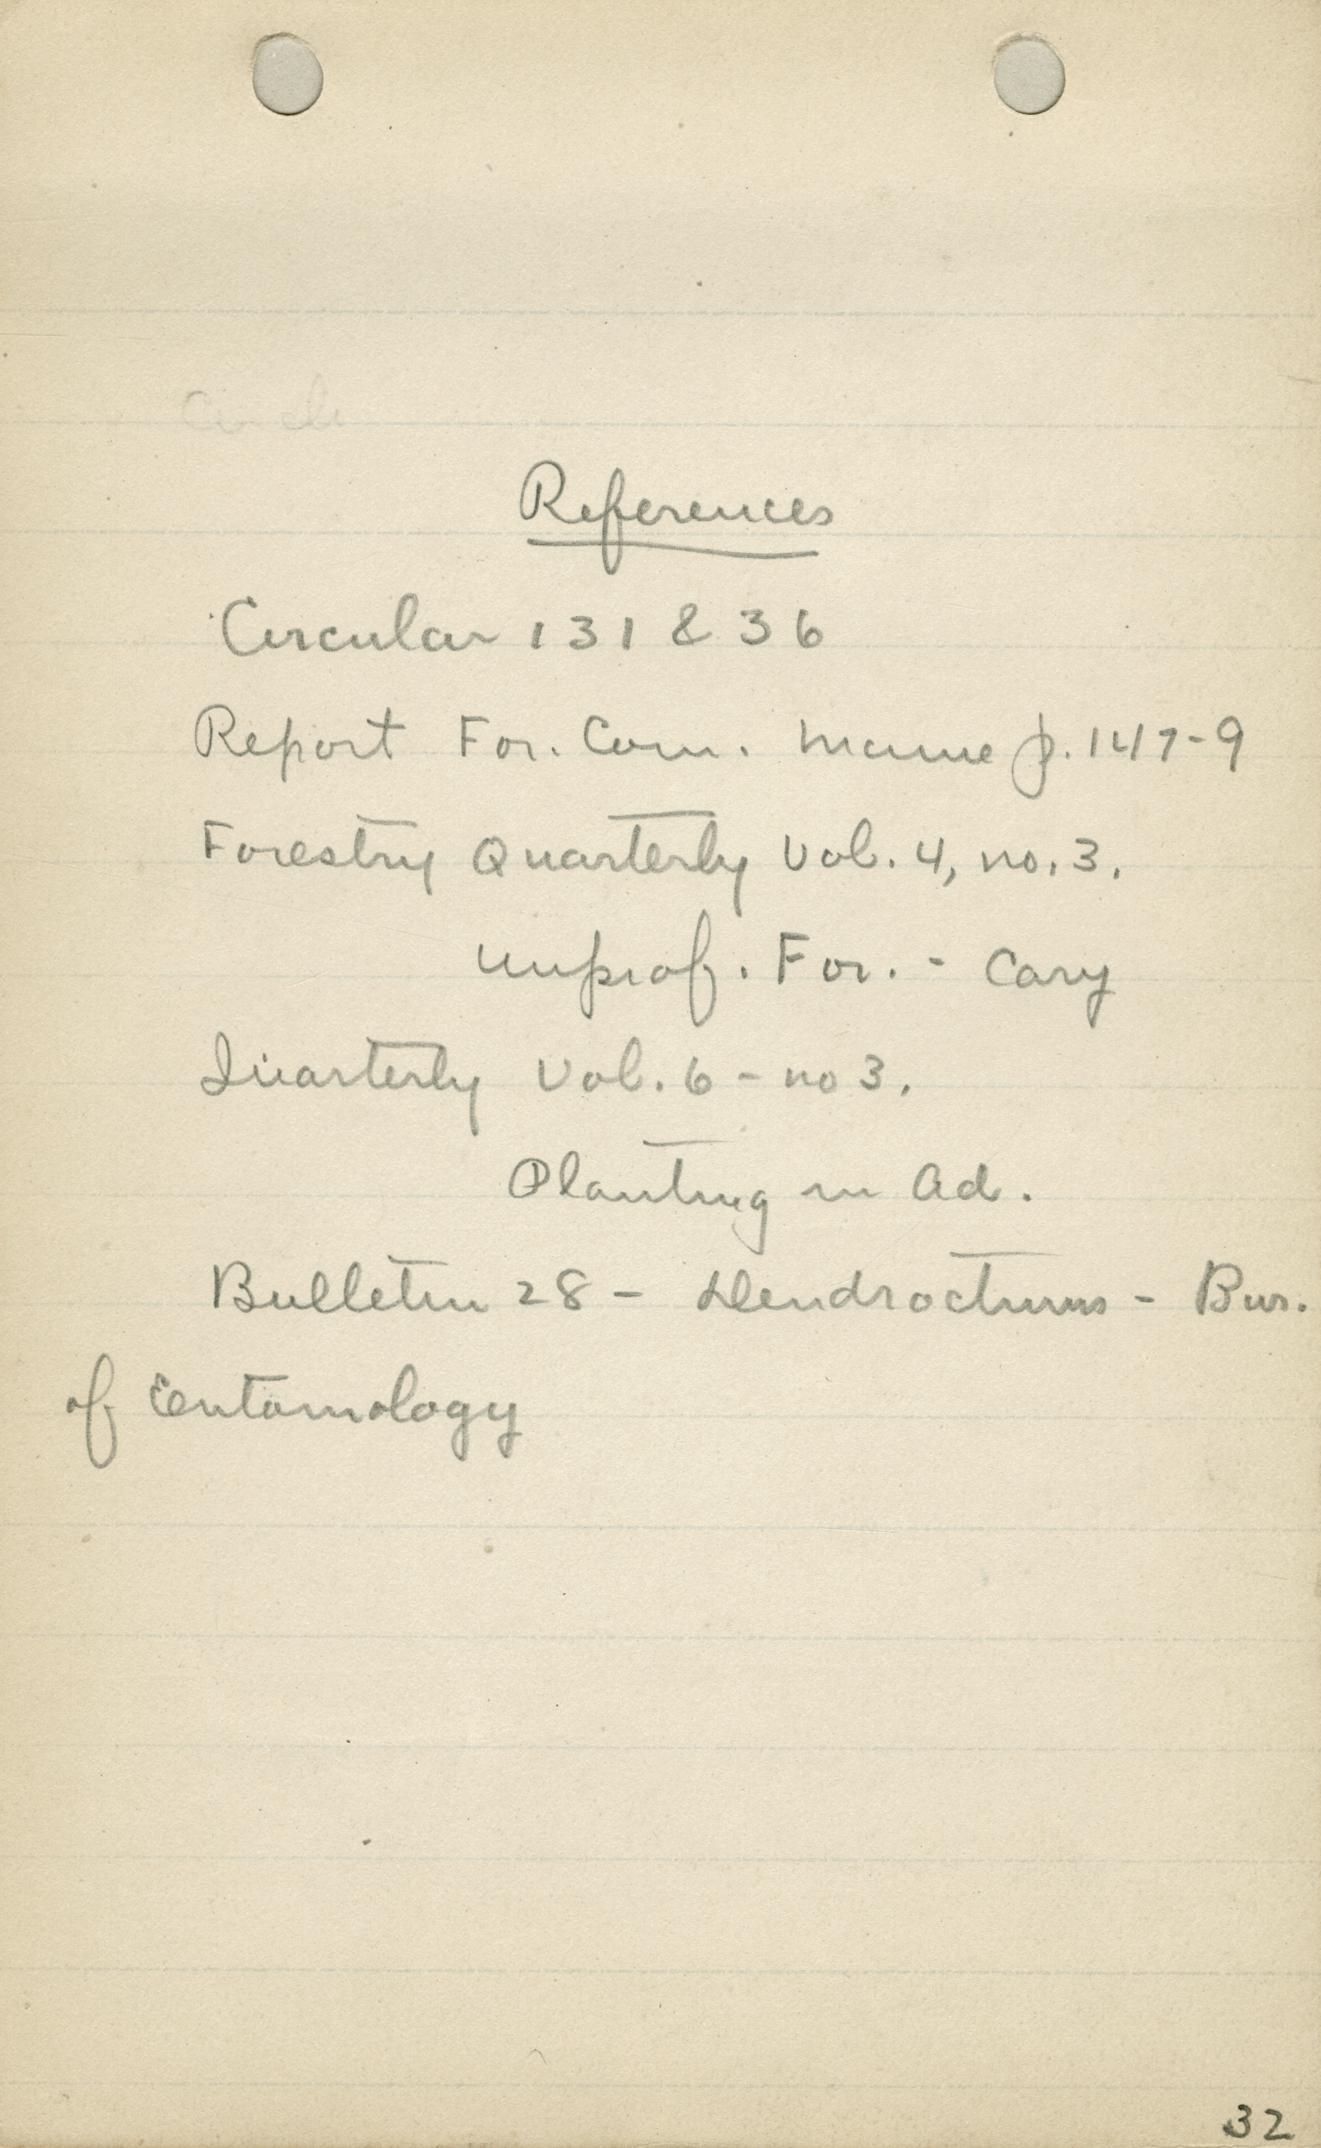 References
Circular 131 & 36
Report For. Com. Maine p. 147-9
Forestry Quarterly Vol. 4, no. 3.
Unprof. For. - Cary
Quarterly Vol. 6 - no 3.
Planting in Ad.
Bulletin 28 - - Bur.
of Entomology
32